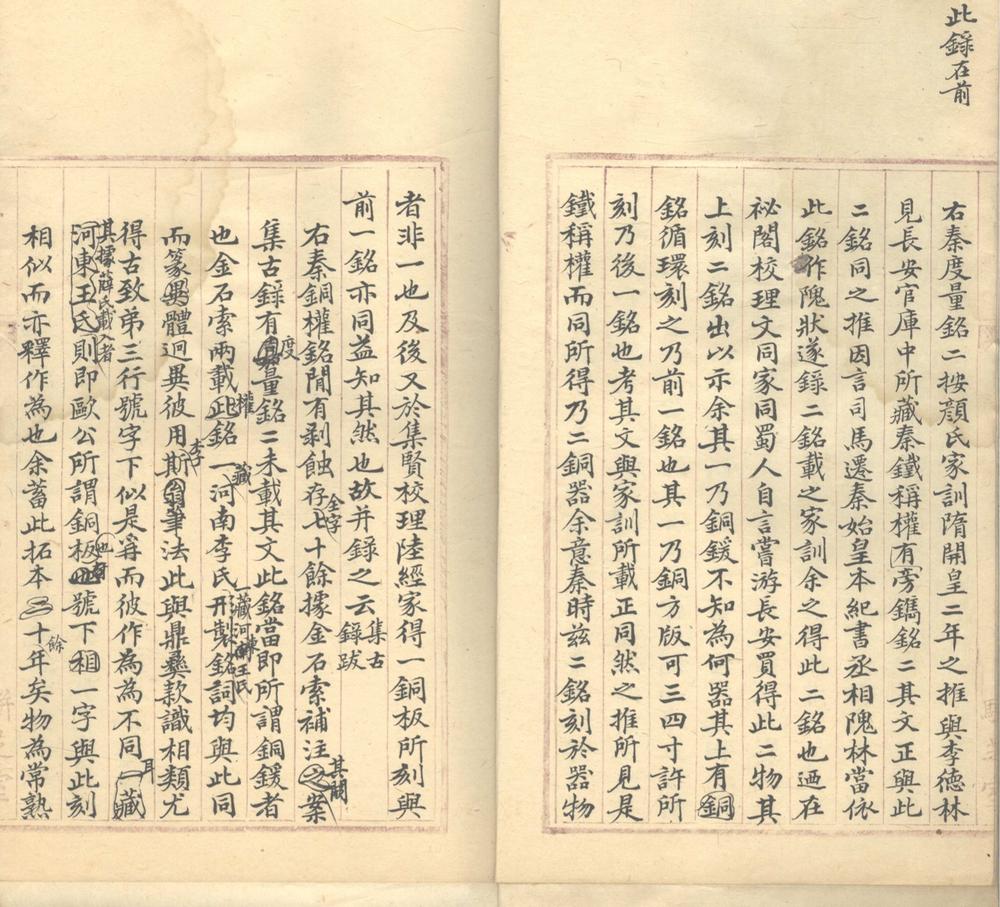 此錄在前
右秦度量銘二按顏氏家訓隋開皇二年之推與李德林
見長安官庫中所藏秦鐵稱權有旁鐫銘二其文正與此
二銘同之推因言司馬遷秦始皇本紀書丞相隗林當依
此銘作隗狀遂錄二銘載之家訓余之得此二銘也迺在
祕閣校理文同家同蜀人自言嘗游長安買得此二物其
上刻二銘出以示余其一乃銅鍰不知為何器其上有銅
銘循環刻之乃前一銘也其一乃銅方版可三四寸許所
刻乃後一銘也考其文與家訓所載正同然之推所見是
鐵稱權而同所得乃二銅器余意秦時茲二銘刻於器物
者非一也及後又於集賢校理陸經家得一銅板所刻與
前一銘亦同益知其然也故并錄之云集古錄跋
右秦銅權銘閒有剥蝕存全字七十餘據金石索補注之其闕案
集古錄有度量銘二未載其文此銘當即所謂銅鍰者
也金石索兩載此權銘一藏河南李氏一藏河東王氏形製銘詞均與此同
而篆體迥異彼用斯李筆法此與鼎彞款識相類尤
得古致弟三行號字下似是𢍏而彼作為為不同耳一藏
河東王氏其據薛氏載入者則即歐公所謂銅板也號下相一字與此刻
相似而亦釋作為也余蓄此拓本十餘年矣物為常熟